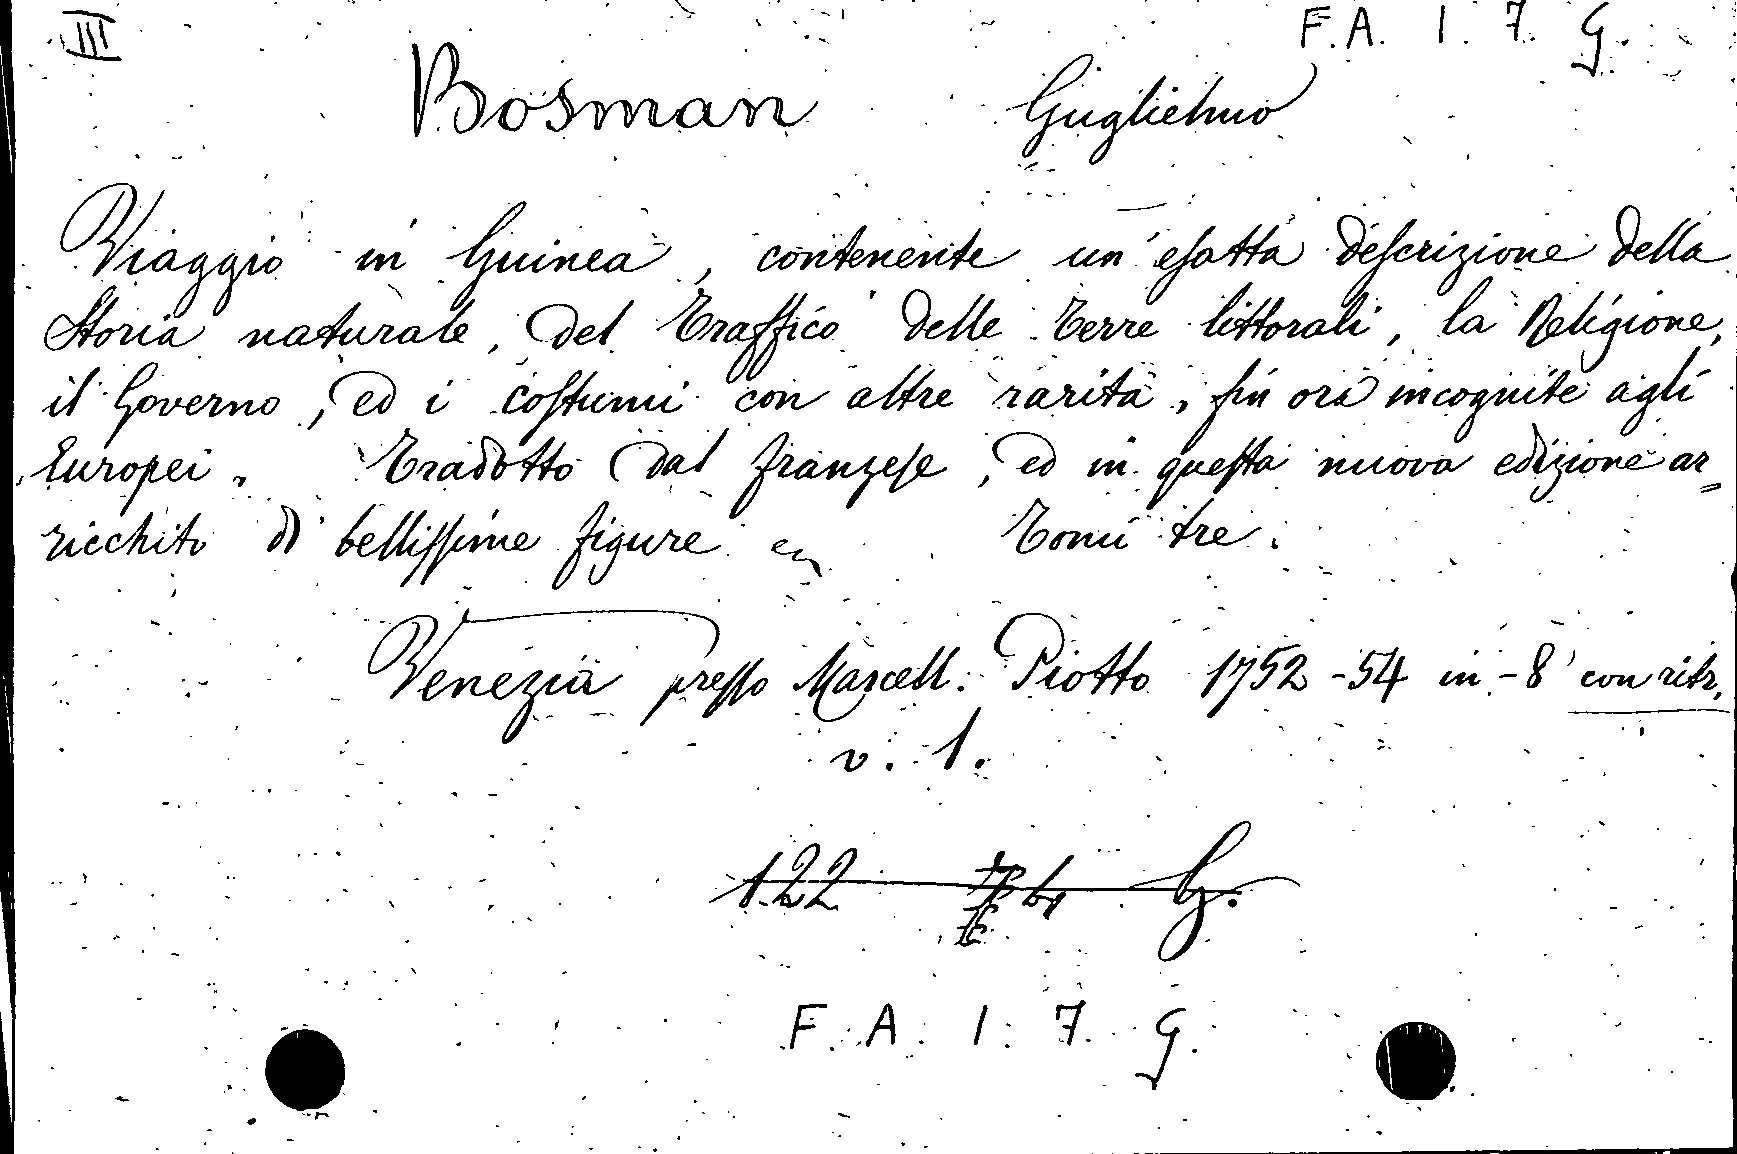 III F.A. 1. 7. G.
Bosman Guglielmo
Viaggio in Guinea, contenente un'esatta descrizione della
Storia naturale, del Traffico delle Terre littorali, la Religione,
il Governo, ed i costumi con altre rarità, fin ora incognite agli
Europei. Tradotto dal franzese, ed in questa nuova edizione ar=
ricchito di bellissime figure Tomi tre.
Venezia presso Marcell. Piotto 1752-54 in-8° con ritr.
v. 1.
122 G.
F. A. 1. 7. G.